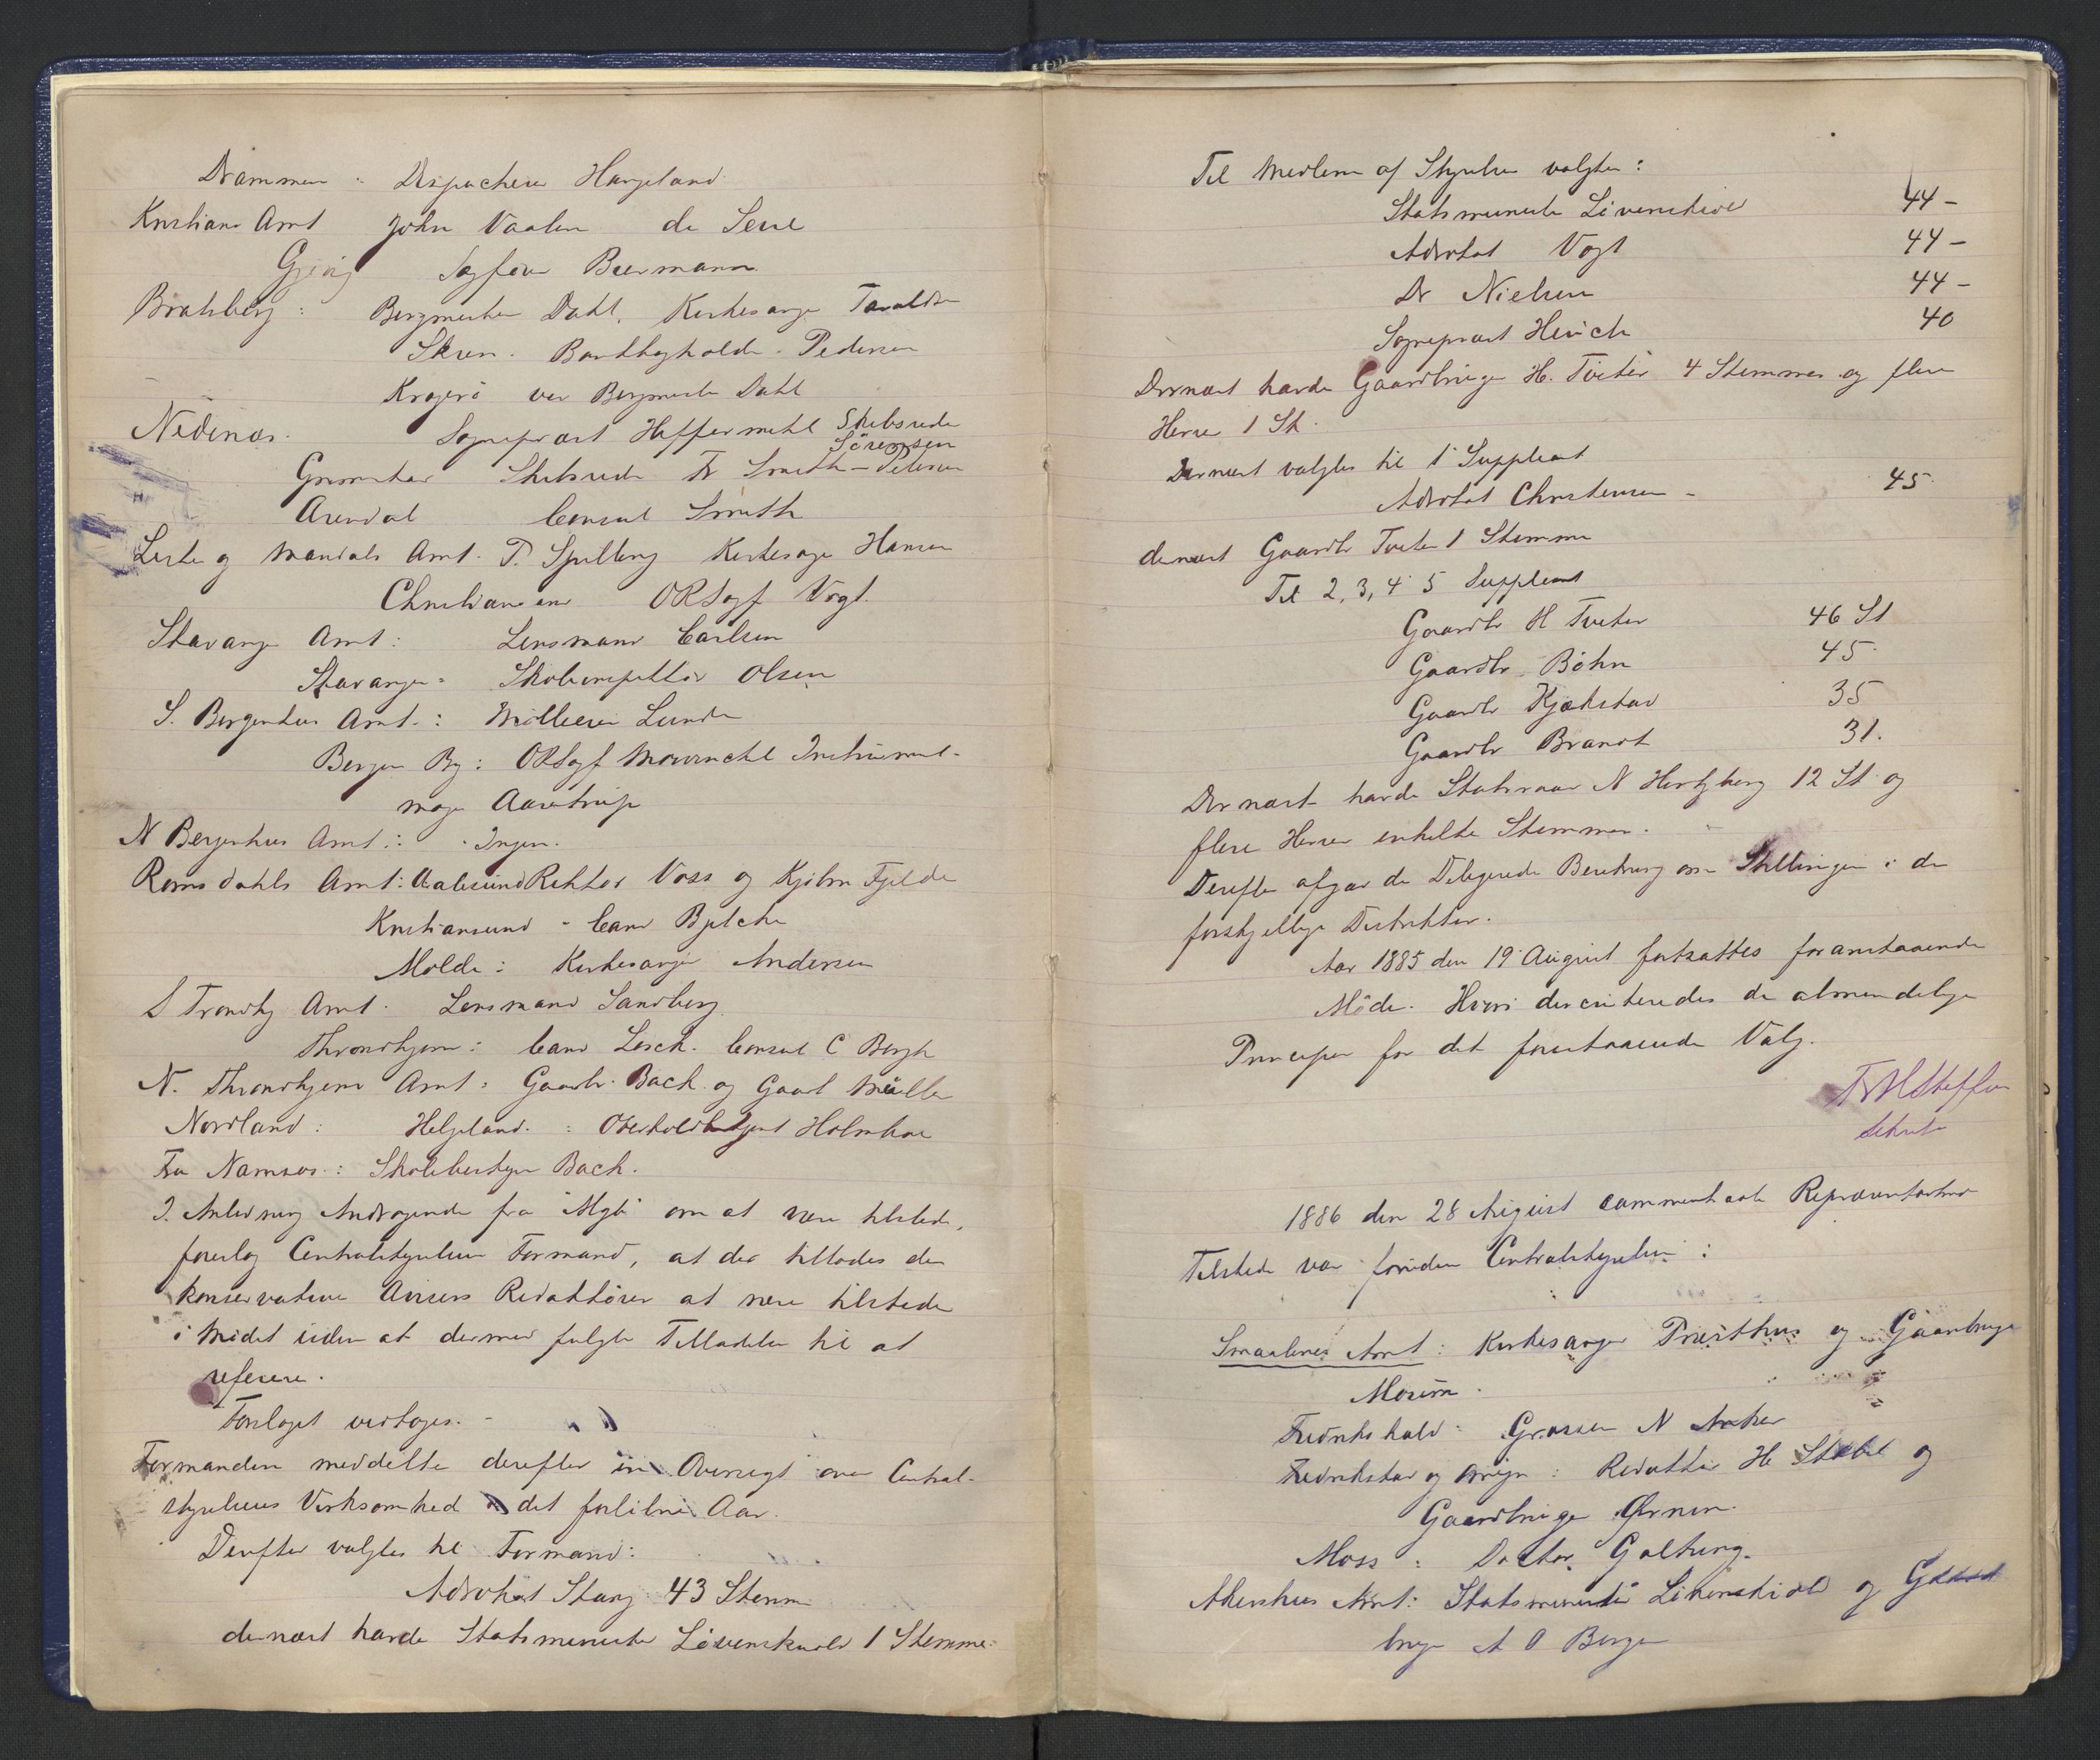 Drammen : Dispacheur Haugeland
Kristians Amt John Vaalen de Seue
Gjøvig Sagfører Biermann
Bratsberg : Bergmester Dahl. Kirkesanger Taraldsen
Skien. Bankbogholder Pedersen
Kragerø ved Bergmester Dahl
Nedenæs. Sogneprest Heffermehl Skibsreder
Sörensen
Grimstad Skibsreder Fr Smith-Petersen
Arendal Consul Smith
Lister og Mandals Amt. P. Spilling Kirkesanger Hansen
Christianssand ORSagf Vogt.
Stavanger Amt : Lensmand Carlsen
Stavanger : Skoleinspektør Olsen
S. Bergenhus Amt. : Mölleeier Lunde
Bergen By : ORSagf Mowinckel Instrument-
mager Aarestrup
N Bergenhus Amt : Ingen.
Romsdahls Amt : Aalesund Rektor Voss og Kjøbm Fjelde
Kristiansund - Cand Bjelche
Molde : Kirkesanger Andersen
S Trondhj Amt. Lensmand Sandberg
Throndhjem : Cand Lerch. Consul C Bergh
N. Throndhjems Amt : Gaardbr. Bach og Gaardbr Müller
Nordland : Helgeland : Holmboe
Fra Namsos : Skolebestyrer Bach.
I Anledning Andragende fra "Mgbl" om at være tilstede,
foreslog Centralstyrelsens Formand, at der tillodes de
konservative Avisers Redaktörer at være tilstede
i Mødet uden at dermed fulgte Tilladelse til at
referere.
Forslaget vedtoges. -
Formanden meddelte derefter en Oversigt over Central-
styrelsens Virksomhed i det forløbne Aar.
Derefter valgtes til Formand :
Advokat Stang 43 Stemmer
dernæst havde Statsminister Løvenskiold 1 Stemme.
Til Medlem af Styrelsen valgtes :
Statsminister Løvenskiold 44 -
Advokat Vogt 44 -
Dr Nielsen 44 -
Sogneprest Heuch 40
Dernæst havde Gaardbruger H. Tveter 4 Stemmer og flere
Herrer 1 St.
Dernæst valgtes til 1 Suppleant
Advokat Christensen - 45
dernæst Gaardbr Tveter 1 Stemme
Til 2, 3, 4 5 Suppleant
Gaardbr H Tveter 46 St
Gaardbr Böhn 45
Gaardbr Kjækstad 35
Gaardbr Brandt 31.
Dernæst havde Statsraad N Hertzberg 12 St og
flere Herrer enkelte Stemmer.
Derefter afgav de Delegerede Beretning om Stillingen i de
forskjellige Distrikter.
Aar 1885 den 19 August fortsattes foranstaaende
Möde. Hvori discuteredes de almindelige
Principer for det forestaaende Valg.
Sekretær
1886 den 28 August sammentraadte Repræsentantmøde
Tilstede var foruden Centralstyrelsen :
Smaalenes Amt : Kirkesanger Præsthus og Gaardbruger
Mosum.
Fredrikshald : Grosserer N Anker
Fredrikstad og Omegn : Redaktør H Stabel og
Gaardbruger Ørnen.
Moss : Doctor Galtung.
Akershus Amt : Statsminister Løvenskiold og Gaard
bruger A O Berger